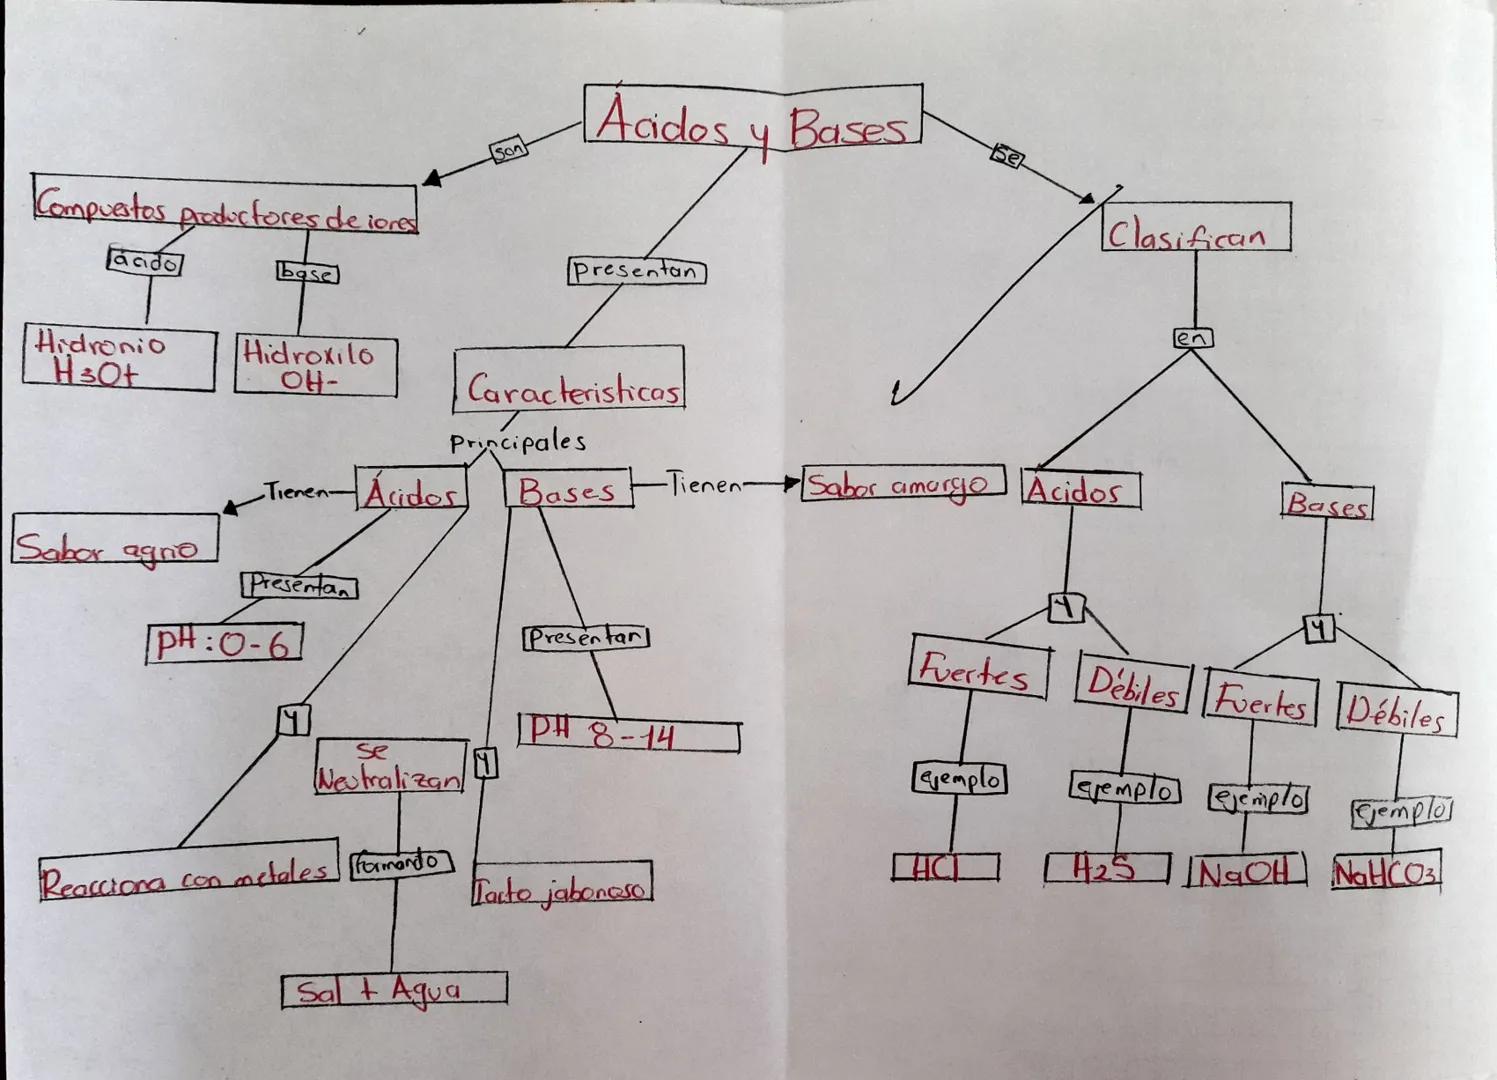 Ácidos y Bases
son
se
Compuestos productores de iones
Clasifican
ácido
base
presentan
Hidronio
H3O+
Hidroxilo
OH-
en
Caracteristicas
Principales
Tienen
Ácidos
Bases
Tienen
Sabor amargo
Acidos
Bases
Sabor agrio
Presentan
pH: 0-6
Presentan
y
y
Fuertes
Débiles
Fuertes
Débiles
y
PH 8-14
se
Neutralizan
y
ejemplo
ejemplo
ejemplo
ejemplo
Reacciona con metales
formando
Tacto jabonoso
HCl
H2S
NaOH
NaHCO3
Sal + Agua